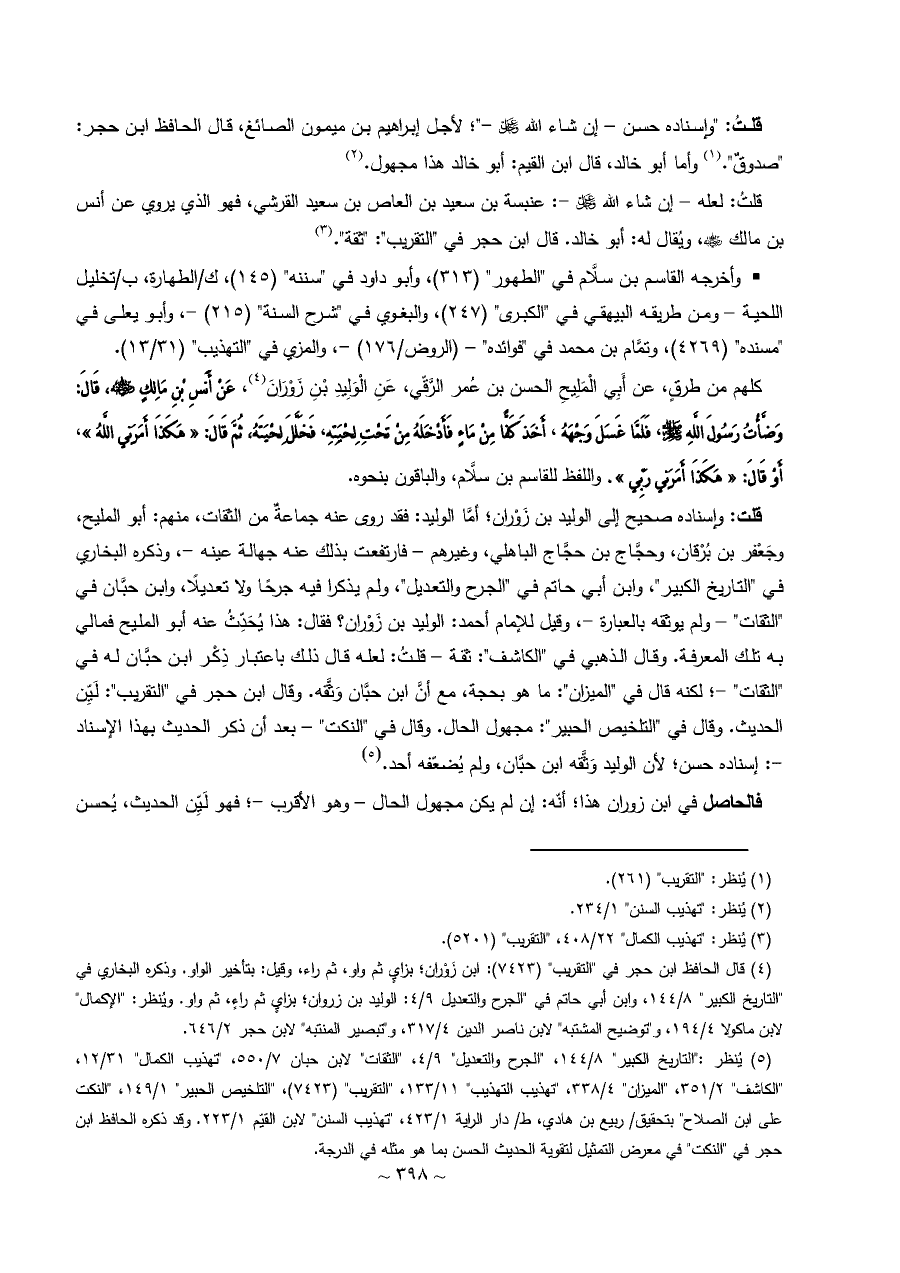 قلتُ: "وإسناده حسن – إن شاء الله ﷻ –"؛ لأجل إبراهيم بن ميمون الصائغ، قال الحافظ ابن حجر:
"صدوقٌ".(١) وأما أبو خالد، قال ابن القيم: أبو خالد هذا مجهول.(٢)
قلتُ: لعله – إن شاء الله ﷻ –: عنبسة بن سعيد بن العاص بن سعيد القرشي، فهو الذي يروي عن أنس
بن مالك ﷺ، ويُقال له: أبو خالد. قال ابن حجر في "التقريب": "ثقة".(٣)
▪ وأخرجه القاسم بن سلَّام في "الطهور" (٣١٣)، وأبو داود في "سننه" (١٤٥)، ك/الطهارة، ب/تخليل
اللحية – ومن طريقه البيهقي في "الكبرى" (٢٤٧)، والبغوي في "شرح السنة" (٢١٥) –، وأبو يعلى في
"مسنده" (٤٢٦٩)، وتمَّام بن محمد في "فوائده" – (الروض/١٧٦) –، والمزي في "التهذيب" (١٣/٣١).
كلهم من طرقٍ، عن أَبِي الْمَلِيحِ الحسن بن عُمر الرَّقِّي، عَنِ الْوَلِيدِ بْنِ زَوْرَانَ(٤)، عَنْ أَنَسِ بْنِ مَالِكٍ ﷺ، قَالَ:
وَضَّأْتُ رَسُولَ اللَّهِ ﷺ، فَلَمَّا غَسَلَ وَجْهَهُ ، أَخَذَ كَفًّا مِنْ مَاءٍ فَأَدْخَلَهُ مِنْ تَحْتِ لِحْيَتِهِ، فَخَلَّلَ لِحْيَتَهُ، ثُمَّ قَالَ: « هَكَذَا أَمَرَنِي اللَّهُ »،
أَوْ قَالَ: « هَكَذَا أَمَرَنِي رَبِّي ». واللفظ للقاسم بن سلَّام، والباقون بنحوه.
قلت: وإسناده صحيح إلى الوليد بن زَوْران؛ أمَّا الوليد: فقد روى عنه جماعةٌ من الثقات، منهم: أبو المليح،
وجَعْفر بن بُرْقان، وحجَّاج بن حجَّاج الباهلي، وغيرهم – فارتفعت بذلك عنه جهالة عينه –، وذكره البخاري
في "التاريخ الكبير"، وابن أبي حاتم في "الجرح والتعديل"، ولم يذكرا فيه جرحًا ولا تعديلًا، وابن حبَّان في
"الثقات" – ولم يوثقه بالعبارة –، وقيل للإمام أحمد: الوليد بن زَوْران؟ فقال: هذا يُحَدِّثُ عنه أبو المليح فمالي
به تلك المعرفة. وقال الذهبي في "الكاشف": ثقة – قلتُ: لعله قال ذلك باعتبار ذِكْر ابن حبَّان له في
"الثقات" –؛ لكنه قال في "الميزان": ما هو بحجة، مع أنَّ ابن حبَّان وَثَّقه. وقال ابن حجر في "التقريب": لَيِّن
الحديث. وقال في "التلخيص الحبير": مجهول الحال. وقال في "النكت" – بعد أن ذكر الحديث بهذا الإسناد
–: إسناده حسن؛ لأن الوليد وَثَّقه ابن حبَّان، ولم يُضعّفه أحد.(٥)
فالحاصل في ابن زوران هذا؛ أنّه: إن لم يكن مجهول الحال – وهو الأقرب –؛ فهو لَيِّن الحديث، يُحسن
(١) يُنظر: "التقريب" (٢٦١).
(٢) يُنظر: "تهذيب السنن" ٢٣٤/١.
(٣) يُنظر: "تهذيب الكمال" ٤٠٨/٢٢، "التقريب" (٥٢٠١).
(٤) قال الحافظ ابن حجر في "التقريب" (٧٤٢٣): ابن زَوْران؛ بزايٍ ثم واو، ثم راء، وقيل: بتأخير الواو. وذكره البخاري في
"التاريخ الكبير" ١٤٤/٨، وابن أبي حاتم في "الجرح والتعديل ٤/٩: الوليد بن زروان؛ بزايٍ ثم راءٍ، ثم واو. ويُنظر: "الإكمال"
لابن ماكولا ١٩٤/٤، و"توضيح المشتبه" لابن ناصر الدين ٣١٧/٤، و"تبصير المنتبه" لابن حجر ٦٤٦/٢.
(٥) يُنظر :"التاريخ الكبير" ١٤٤/٨، "الجرح والتعديل" ٤/٩، "الثقات" لابن حبان ٥٥٠/٧، "تهذيب الكمال" ١٢/٣١،
"الكاشف" ٣٥١/٢، "الميزان" ٣٣٨/٤، "تهذيب التهذيب" ١٣٣/١١، "التقريب" (٧٤٢٣)، "التلخيص الحبير" ١٤٩/١، "النكت
على ابن الصلاح" بتحقيق/ ربيع بن هادي، ط/ دار الراية ٤٢٣/١، "تهذيب السنن" لابن القيّم ٢٢٣/١. وقد ذكره الحافظ ابن
حجر في "النكت" في معرض التمثيل لتقوية الحديث الحسن بما هو مثله في الدرجة.
~ ٣٩٨ ~